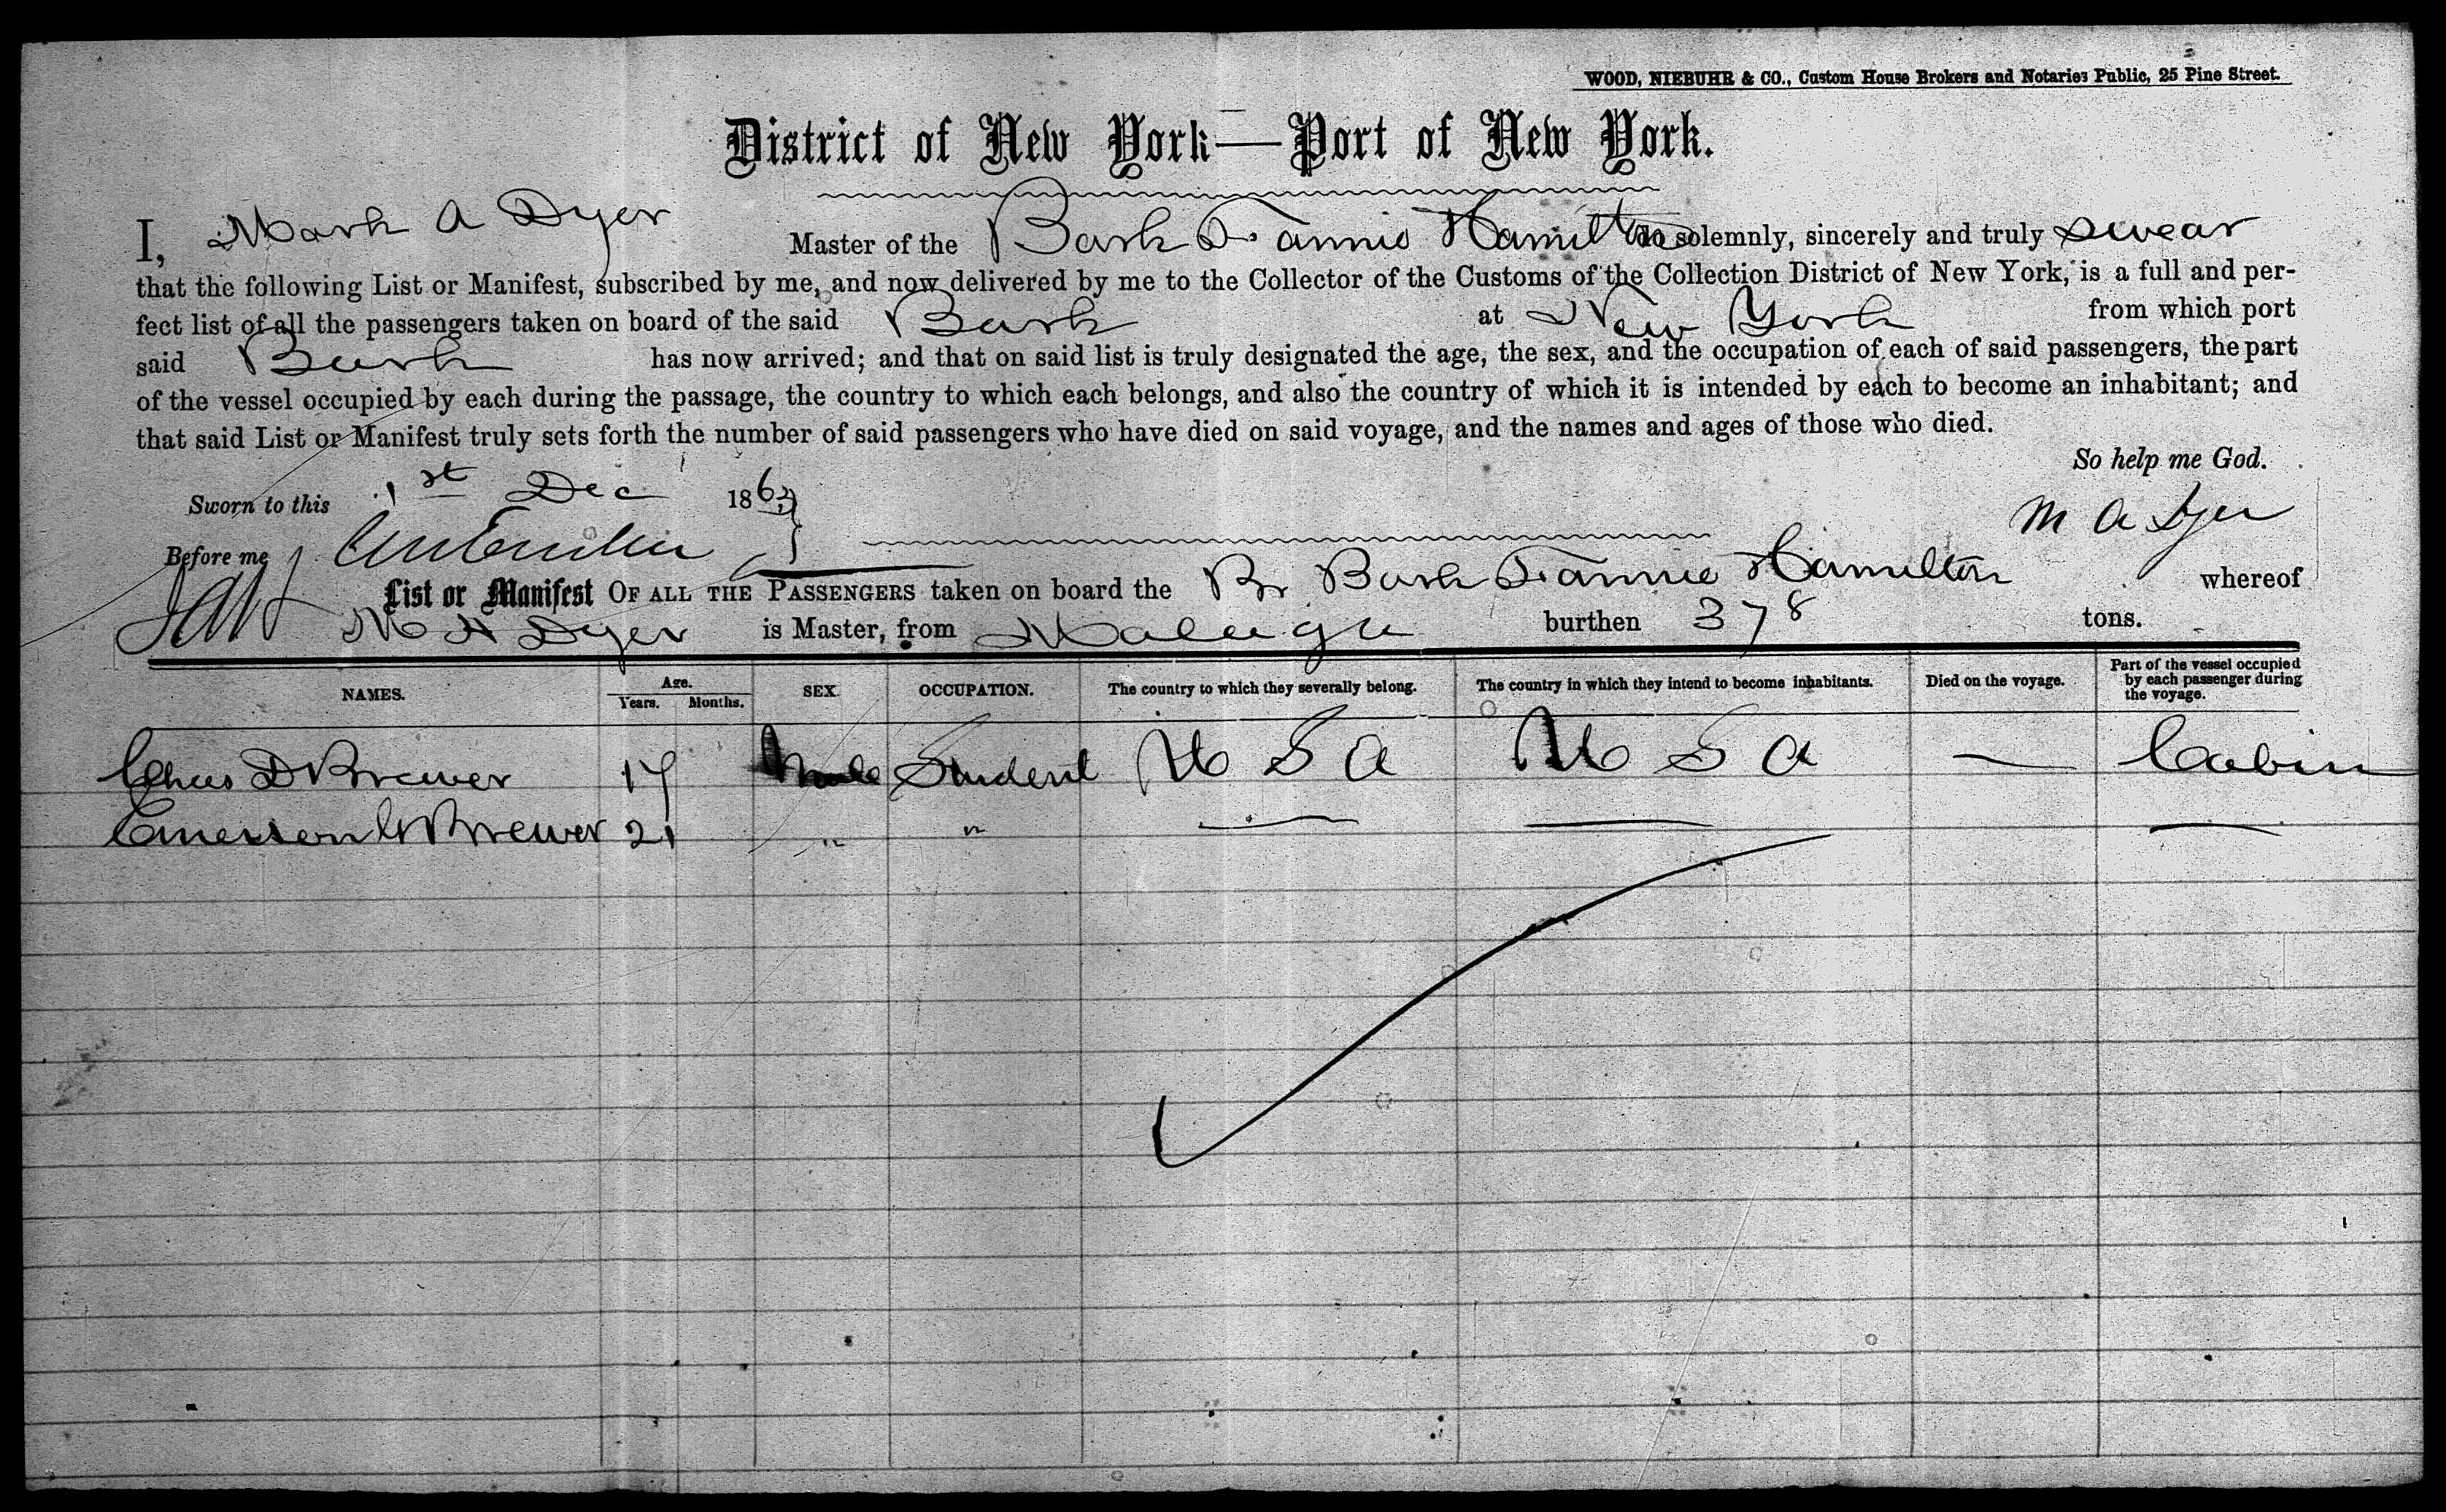 WOOD, NIEBUHR & CO., Custom House Brokers and Notaries Public, 25 Pine Street.
District of New York—Port of New York.
I, Mark A Dyer Master of the Bark Fannie Hamilton do solemnly, sincerely and truly swear
that the following List or Manifest, subscribed by me, and now delivered by me to the Collector of the Customs of the Collection District of New York, is a full and per-
fect list of all the passengers taken on board of the said Bark at New York from which port
said Bark has now arrived; and that on said list is truly designated the age, the sex, and the occupation of each of said passengers, the part
of the vessel occupied by each during the passage, the country to which each belongs, and also the country of which it is intended by each to become an inhabitant; and
that said List or Manifest truly sets forth the number of said passengers who have died on said voyage, and the names and ages of those who died.
So help me God.
Sworn to this 1st Dec 1863
M A Dyer
Before me
List or Manifest OF ALL THE PASSENGERS taken on board the Br Bark Fannie Hamilton whereof
M A Dyer is Master, from Malaga burthen 378 tons.
NAMES. Age. Years. Months. SEX. OCCUPATION. The country to which they severally belong. The country in which they intend to become inhabitants. Died on the voyage. Part of the vessel occupied by each passenger during the voyage.
Chas D Brewer 17 Male Student U S A U S A — Cabin
Emerson W Brewer 21 " " — — —